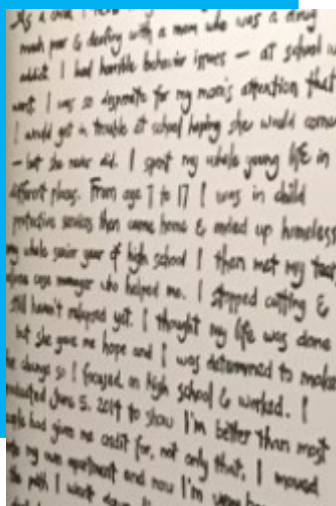 As a child I never
much poor & dealing with a mom who was a drug
addict. I had horrible behavior issues — at school
went. I was so desperate for my mom's attention that
I would get in trouble at school hoping she would come
– but she never did. I spent my whole young life in
different places. From age 7 to 17 I was in child
protective services then came home & ended up homeless
my whole senior year of high school I then met my
case manager who helped me. I stopped cutting &
still haven't relapsed yet. I thought my life was done
but she gave me hope and I was determined to make
change so I focused on high school & worked. I
graduated June 5, 2014 to show I'm better than most
people had given me credit for, not only that, I moved
into my own apartment and now I'm
the path I went